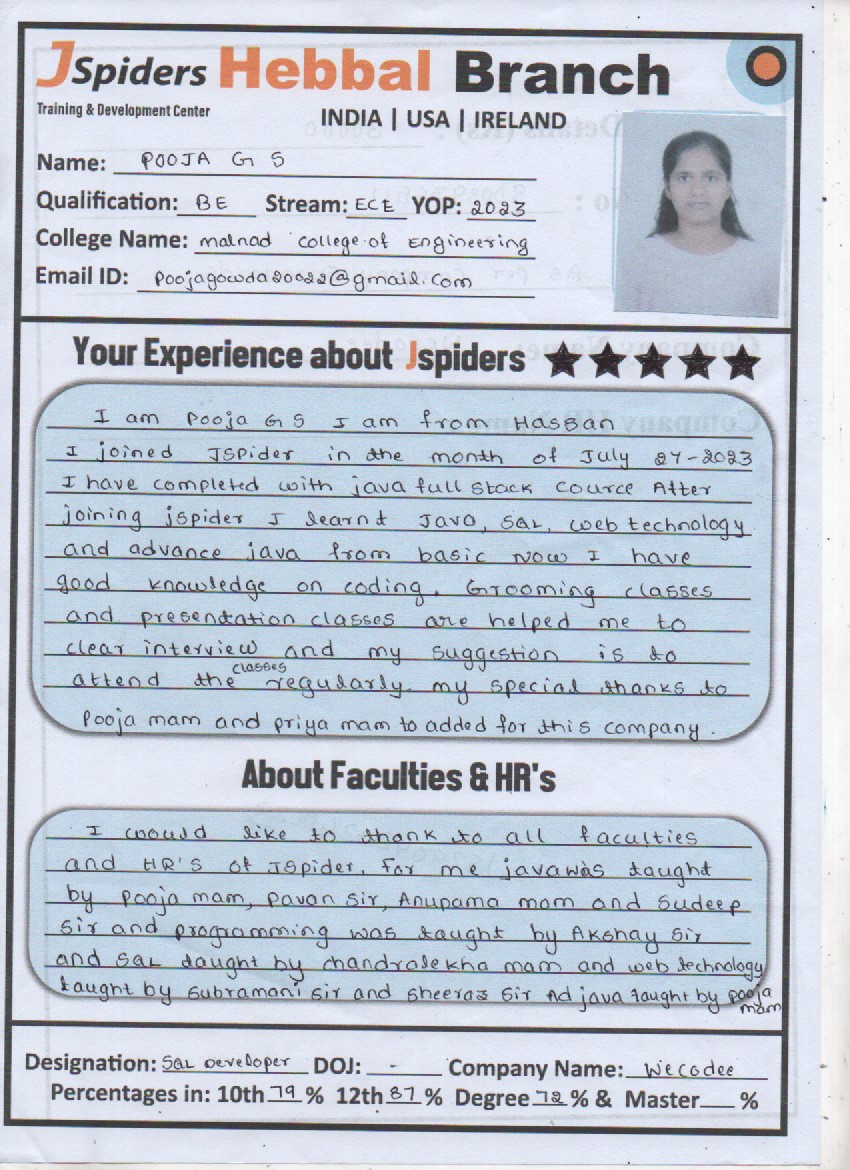 JSpiders Hebbal Branch
Training & Development Center
INDIA | USA | IRELAND
Name: POOJA G S
Qualification: BE Stream: ECE YOP: 2023
College Name: malnad college of Engineering
Email ID: poojagowda20022@gmail.com
Your Experience about Jspiders
I am Pooja G S I am from Hassan
I joined JSpider in the month of July 27-2023
I have completed with java full stack cource After
joining jspider I learnt Java, SQL, web technology
and advance java from basic Now I have
good knowledge on coding. Grooming classes
and presentation classes are helped me to
clear interview and my suggestion is to
attend the classes regularly. my special thanks to
Pooja mam and priya mam to added for this company.
About Faculties & HR's
I would like to thank to all faculties
and HR'S of JSpider. For me java was taught
by pooja mam, pavan sir, Anupama mam and Sudeep
sir and programming was taught by Akshay Sir
and SQL taught by chandralekha mam and web technology
taught by Subramani Sir and Sheeraz Sir Ad java taught by pooja mam
Designation: SQL Developer DOJ: - Company Name: Wecodee
Percentages in: 10th 79 % 12th 87 % Degree 72 % & Master %